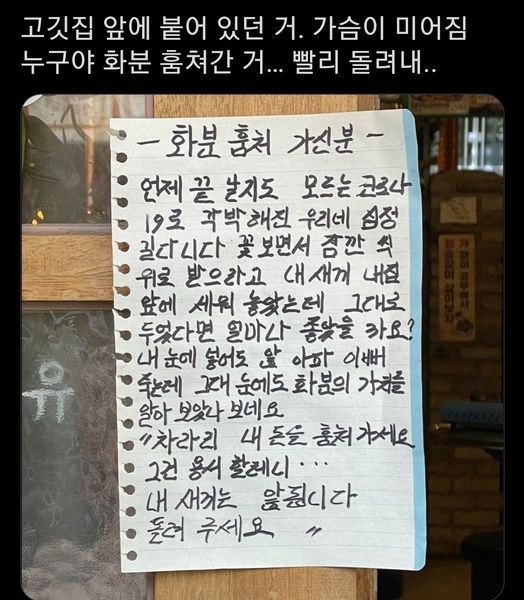 고깃집 앞에 붙어 있던 거. 가슴이 미어짐
누구야 화분 훔쳐간 거... 빨리 돌려내..
- 화분 훔쳐 가신분 -
언제 끝 날지도 모르는 코로나
19로 각박해진 우리네 심정
길다니다 꽃보면서 잠깐 씩
위로 받으라고 내새끼 내집
앞에 세워 놓았는데 그대로
두었다면 얼마나 좋았을 까요?
내 눈에 넣어도 앞 아파 이뻐
죽는데 그대 눈에도 화분의 가치를
알아 보았나 보네요
"차라리 내 돈을 훔쳐가세요
그건 용서 할테니...
내 새끼는 앞됩니다
돌려 주세요 "
유